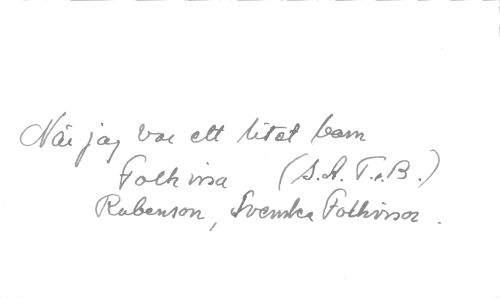 När jag var ett litet barn
Folkvisa (S.A.T.o.B.)
Rubenson, Svenska Folkvisor.